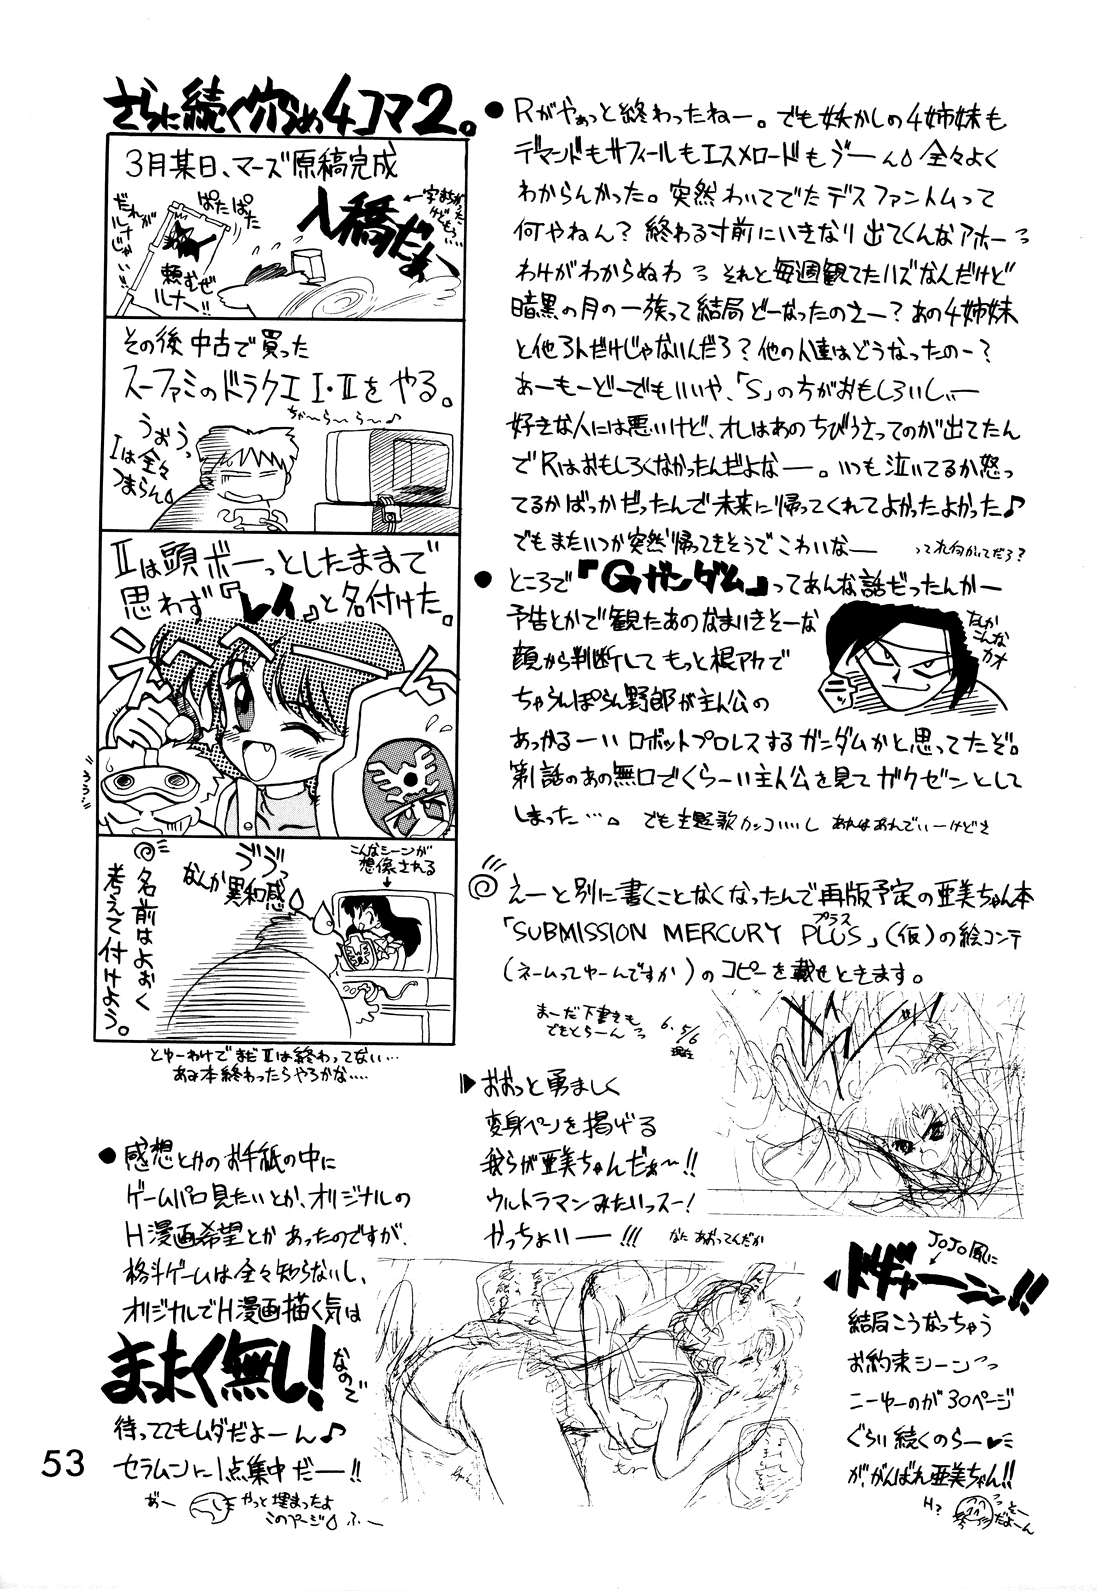 さらに続く穴うめ4コマ2。
3月某日、マーズ原稿完成
入稿だぁ〜
ぱたぱた
だれが
ルナじゃい
頼むぜ
ルナー!!
その後中古で買った
スーファミのドラクエⅠ・Ⅱをやる。
ちゃ〜ら〜ら〜♪
うぉぅっ
Ⅰは全々
つまらん
Ⅱは頭ボーっとしたままで
思わず『レイ』と名付けた。
こんなシーンが
想像される
ゔゔっ
なんか異和感
名前はよぉく
考えて付けよう。
とゆーわけでまだⅡは終わってない…
あみ本終わったらやろかな‥‥
●Rがやぁっと終わったねー。でも妖かしの4姉妹も
デマンドもサフィールもエスメロードもゔーん 全々よく
わからんかった。突然わいてでたデスファントムって
何やねん?終わる寸前にいきなり出てくんなアホーっ
わけがわからぬわっ それと毎週観てたハズなんだけど
暗黒の月の一族って結局どーなったのさー?あの4姉妹
と他3人だけじゃないんだろ?他の人達はどうなったのー?
あーもーどーでもいいや、「S」の方がおもしろいしぃー
好きな人には悪いけど、オレはあのちびうさってのが出てたん
でRはおもしろくなかったんだよなー。いつも泣いてるか怒っ
てるかばっかだったんで未来に帰ってくれてよかったよかった♪
でもまたいつか突然帰ってきそうでこわいなー
●ところで『Gガンダム』ってあんな話だったんかー
予告とかで観たあのなまいきそーな
顔から判断してもっと根アカで
ちゃらんぽらん野郎が主人公の
あっかるーいロボットプロレスするガンダムかと思ってたぞ。
第1話のあの無口でくらーい主人公を見てガクゼンとして
しまった…。でも主題歌カッコいいし あれはあれでいーけどさ
なんか
こんな
カオ
えーと別に書くことなくなったんで再版予定の亜美ちゃん本
「SUBMISSION MERCURY PLUS」(仮)の絵コンテ
プラス
(ネームってゆーんですか)のコピーを載せときます。
まーだ下書きも
でもとらーんっ
6.5/6
現在
▶おおっと勇ましく
変身ペンを掲げる
我らが亜美ちゃんだぁ〜!!
ウルトラマンみたいっスー!
かっちょいー!!!
なにあおってんだか
JOJO風に
ドギャーーン!!
結局こうなっちゃう
お約束シーンっ
こーゆーのが30ページ
ぐらい続くのらー♥
が、がんばれ亜美ちゃん!!
H?
そー
だよーん
●感想とかのお手紙の中に
ゲームパロ見たいとか、オリジナルの
H漫画希望とかあったのですが、
格斗ゲームは全々知らないし、
オリジナルでH漫画描く気は
まったく無し!なので
待っててもムダだよーん♪
セラムンに1点集中だー!!
おー
やっと埋まったよ
このページ ふー
53